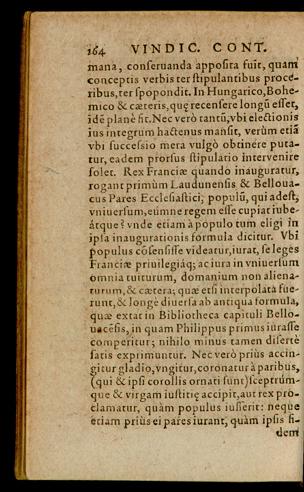 164 VINDIC. CONT.
mana, conseruanda apposita fuit, quam
conceptis verbis ter stipulantibus proce-
ribus, ter spopondit. In Hungarico, Bohe-
mico & cæteris, quę recensere longũ esset,
idẽ planè fit. Nec verò tantũ, vbi electionis
ius integrum hactenus mansit, verùm etiã
vbi successio mera vulgò obtinere puta-
tur, eadem prorsus stipulatio intervenire
solet. Rex Franciæ quando inauguratur,
rogant primùm Laudunensis & Belloua-
cus Pares Ecclesiastici, populũ, qui adest,
vniuersum, eúmne regem esse cupiat iube-
átque? vnde etiam à populo tum eligi in
ipsa inaugurationis formula dicitur. Vbi
populus cõsensisse videatur, iurat, se leges
Franciæ priuilegiáq; ac iura in vniuersum
omnia tuiturum, domanium non aliena-
turum, & cætera; quæ etsi interpolata fue-
runt, & longè diuersa ab antiqua formula,
quæ extat in Bibliotheca capituli Bello-
uacẽsis, in quam Philippus primus iurasse
comperitur; nihilo minus tamen disertè
satis exprimuntur. Nec verò priùs accin-
gitur gladio, vngitur, coronatur à paribus,
(qui & ipsi corollis ornati sunt) sceptrúm-
que & virgam iustitię accipit, aut rex pro-
clamatur, quàm populus iusserit: neque
etiam priùs ei pares iurant, quàm ipsis fi-
dem